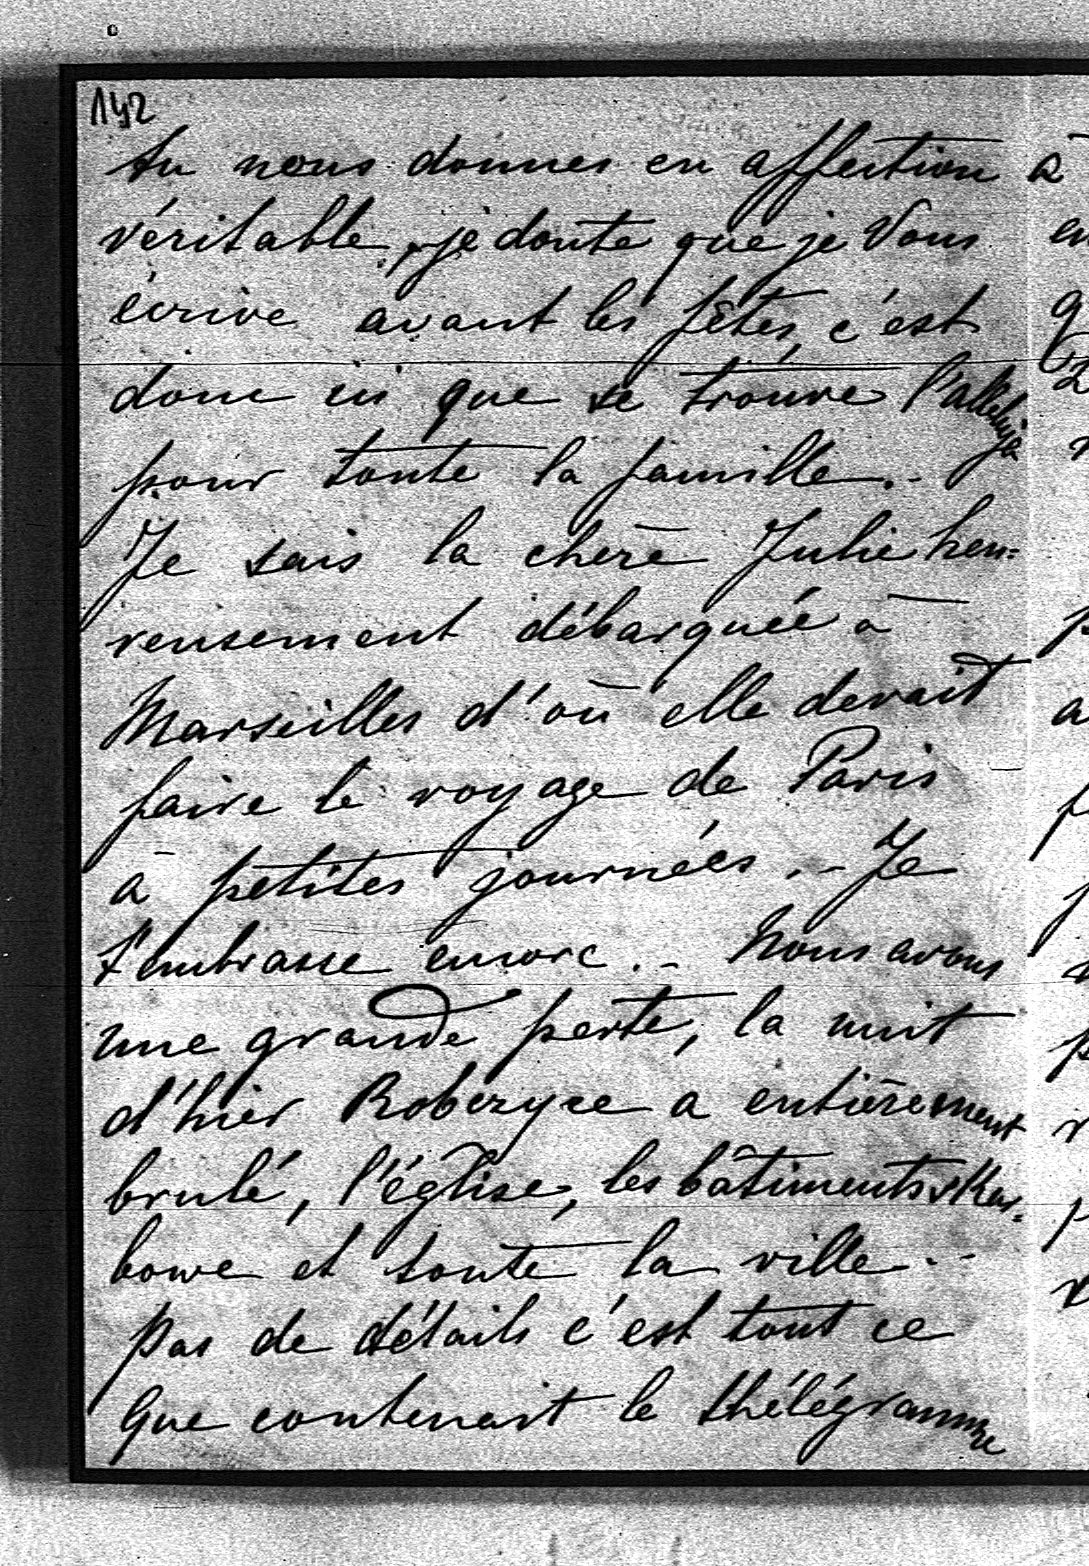 142
tu nous donnes en affection
véritable, je doute que je Vous
écrive avant les fêtes, c'est
donc ici que se trouve l'alleluja
pour toute la famille.-
Je sais la chère Julie heu=
reusement débarquée à
Marseilles d'où elle devait
faire le voyage de Paris
à petites journées.- Je
t'embrasse encore.- Nous avons
une grande perte, la nuit
d'hier Roberyce a entièrement
brulé, l'église, les bâtiments skar=
bowe et toute la ville.-
Pas de détails c'est tout ce
que contenait le thélégramme